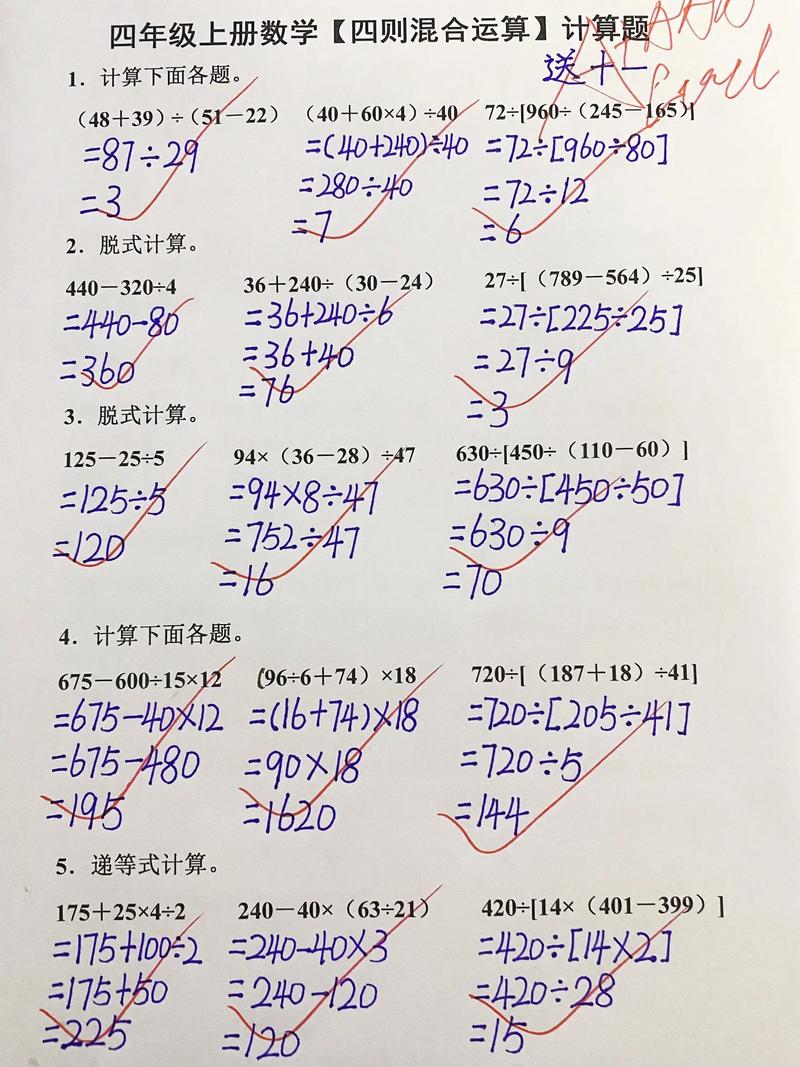 四年级上册数学【四则混合运算】计算题
送十一
1．计算下面各题。
（48＋39）÷（51－22） （40＋60×4）÷40 72÷[960÷（245－165）]
=87÷29 =(40+240)÷40 =72÷[960÷80]
=3 =280÷40 =72÷12
=7 =6
2．脱式计算。
440－320÷4 36＋240÷（30－24） 27÷[（789－564）÷25]
=440-80 =36+240÷6 =27÷[225÷25]
=360 =36+40 =27÷9
=76 =3
3．脱式计算。
125－25÷5 94×（36－28）÷47 630÷[450÷（110－60）]
=125÷5 =94×8÷47 =630÷[450÷50]
=120 =752÷47 =630÷9
=16 =70
4．计算下面各题。
675－600÷15×12 （96÷6＋74）×18 720÷[（187＋18）÷41]
=675-40×12 =(16+74)×18 =720÷[205÷41]
=675-480 =90×18 =720÷5
=195 =1620 =144
5．递等式计算。
175＋25×4÷2 240－40×（63÷21） 420÷[14×（401－399）]
=175+100÷2 =240-40×3 =420÷[14×2]
=175+50 =240-120 =420÷28
=225 =120 =15